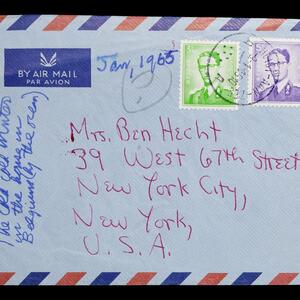 BY AIR MAIL
PAR AVION
Jan, 1965
Mrs. Ben Hecht
39 West 67th Street
New York City,
New York,
U. S. A.
The old old winter
in the house in
Belgium (by the sea)